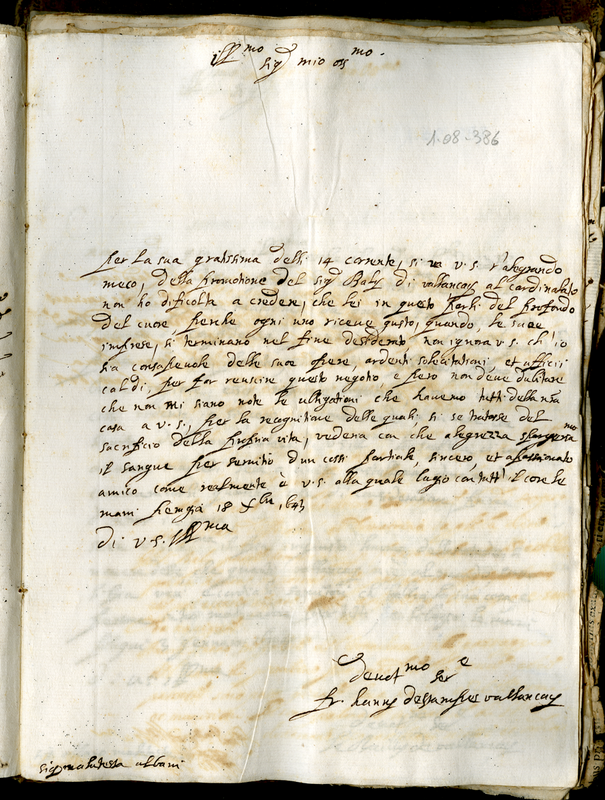 Ill.mo
sig.r mio oss.mo
1-08-386
Per La sua gratissima delli 14 corrente, si va v.s. r'alegrando
meco, della promotione del sig.r Baly di vallançay al cardinalato
non ho dificolta a credere, che lei in questo parli del profondo
del cuore, perche ogni uno riceve gusto, quando, le sue
imprese, si terminano nel fine desiderato, non ignora v.s. ch'io
sia consapevole delle sue opere, ardenti solecitationi, et ufficii
caldi, per far reuscire questo negotio, e pero non deve dubitare
che non mi siano note le obligationi che havemo tutti della nra
casa a v.s., per la recognitione delle quali, si se tratasse del
sacrificio della propria vita, vederia con che alegrezza
il sangue per servitio d'un cossi partiale, sincero, et apassionato
amico come realmente è v.s. alla quale con tutt' il core le
mani 18 Xbre 1643
Di v.s. Ill.ma
devot.mo ser.e
fr. henry destampes vallançay
sig. malatesta albani